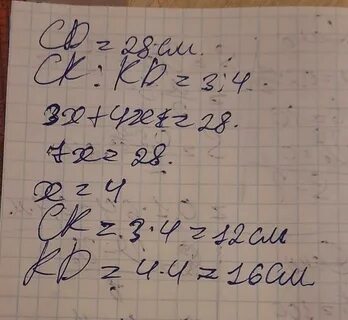 CD = 28см.
CK : KD = 3:4
3x+4x=28.
7x = 28.
x = 4
CK = 3·4 = 12см
KD = 4·4 = 16см